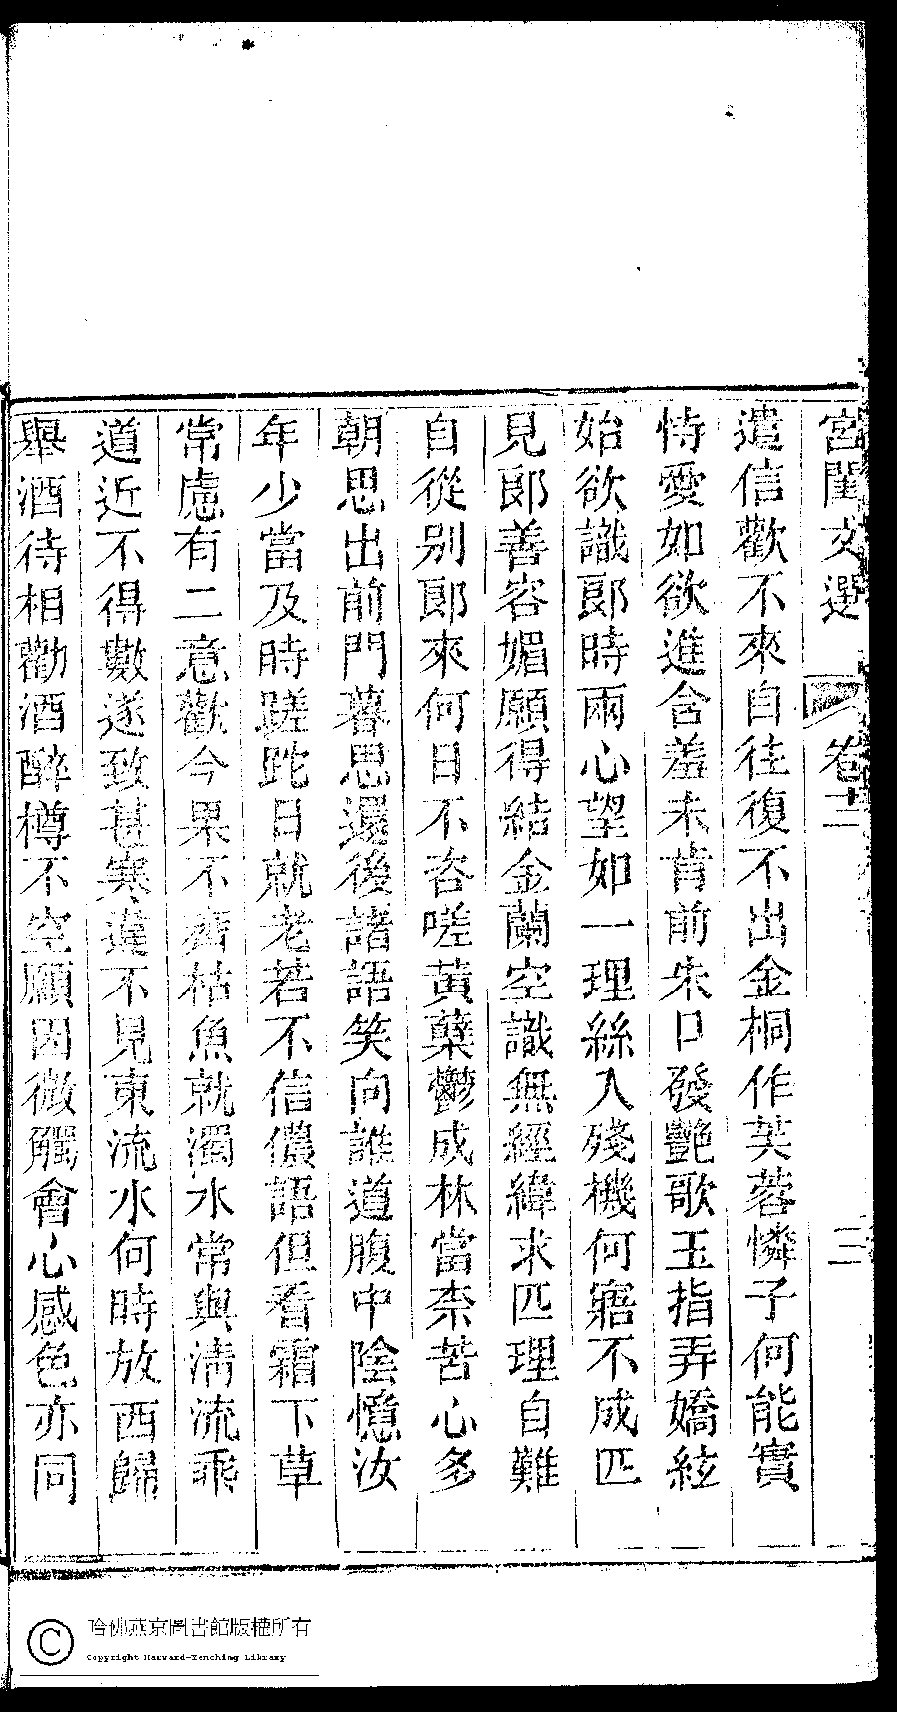 宮閨文選 卷十二 三
遣信歡不來自往復不出金桐作芙蓉憐子何能實
恃愛如欲進含羞未肯前朱口發艷歌玉指弄嬌絃
始欲識郎時兩心望如一理絲入殘機何寤不成匹
見郎善容媚願得結金蘭空識無經緯求匹理自難
自從别郎來何日不咨嗟黃蘗鬱成林當柰苦心多
朝思出前門暮思還後諸語笑向誰道腹中陰憶汝
年少當及時蹉跎日就老若不信儂語但看霜下草
常慮有二意歡今果不齊枯魚就濁水常與淸流乖
道近不得數遂致甚寒違不見東流水何時放西歸
舉酒待相勸酒醉樽不空願因微觴會心感色亦同
哈佛燕京圖書館版權所有
Copyright Harvard-Yenching Library